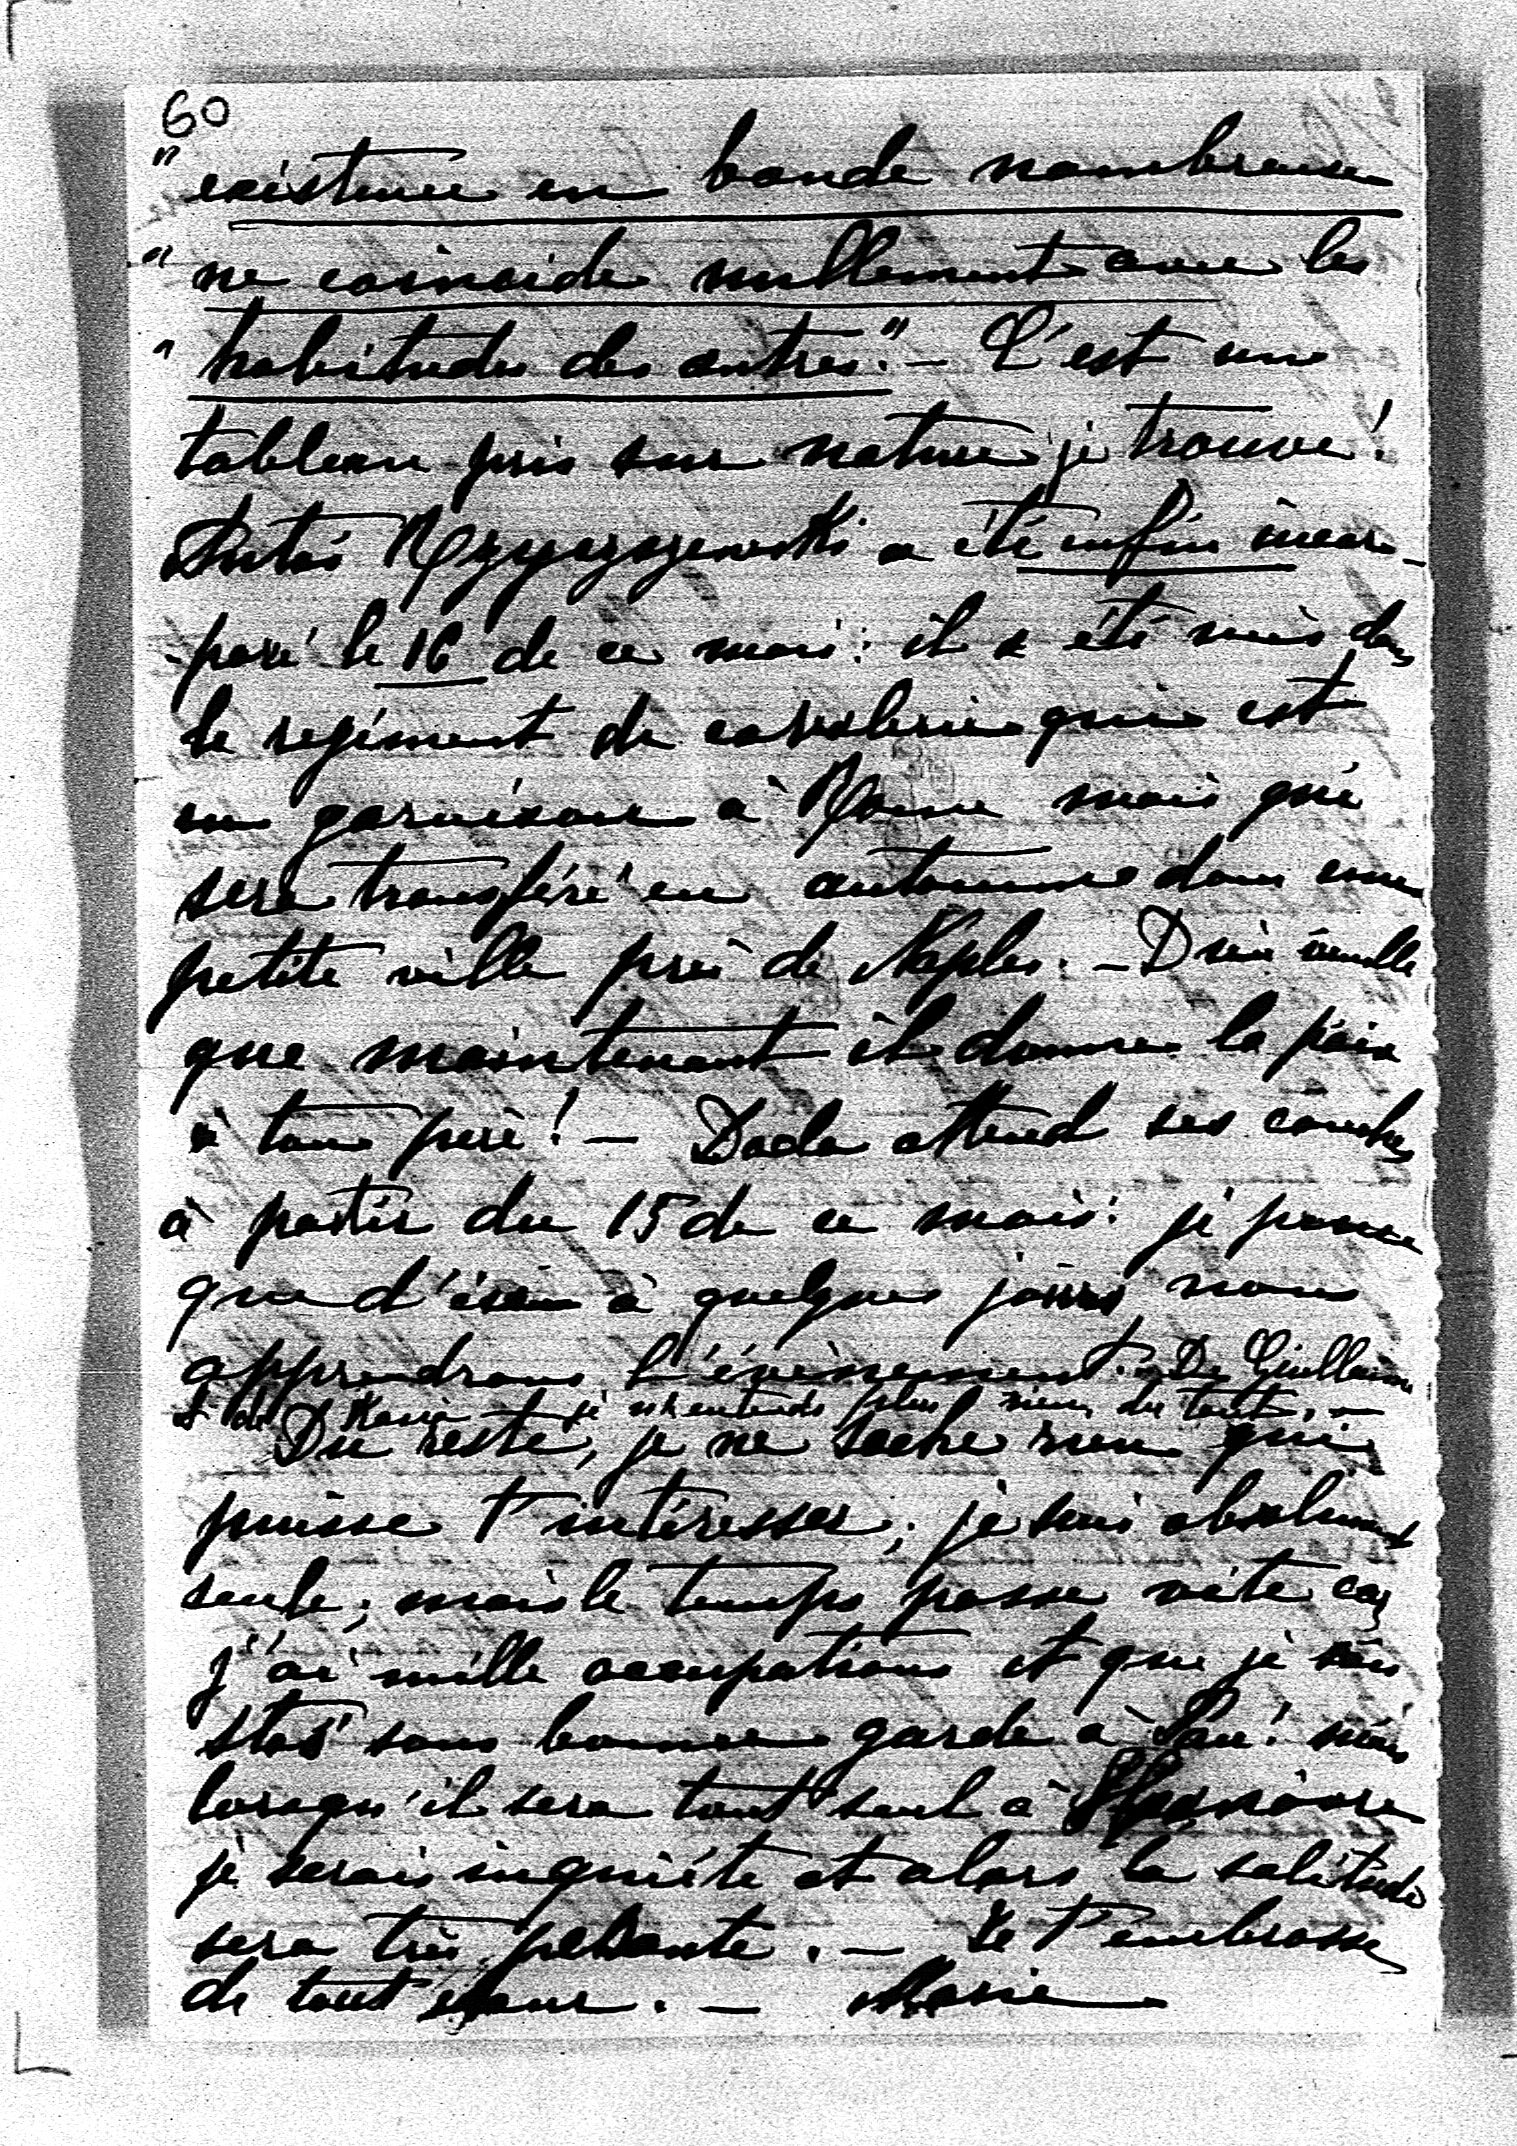 60
" existence en bande nombreuse
" ne coincide nullement avec les
" habitudes des autres." — C'est un
tableau pris sur nature je trouve!
a été enfin incor-
poré le 16 de ce mois: il a été mis dans
le regiment de cavalerie qui est
en garnison à Rome mais qui
sera transféré en automne dans une
petite ville près de Naples. — Dieu veuille
que maintenant il donne la paix
à ton père! — Dada attend ses couches
à partir du 15 de ce mois: je pense
que d'ici à quelques jours nous
apprendrons l'évènement. — De Guillaume
et de je n'entends plus rien du tout. —
Du reste, je ne sache rien qui
puisse t'intéresser; je suis absolument
seule; mais le temps passe vite car
j'ai mille occupations et que je sais
Stas sous bonne garde à Pau! mais
lorsqu'il sera tout seul à
je serais inquiéte et alors la solitude
sera très pesante. — Je t'embrasse
de tout cœur. — Marie